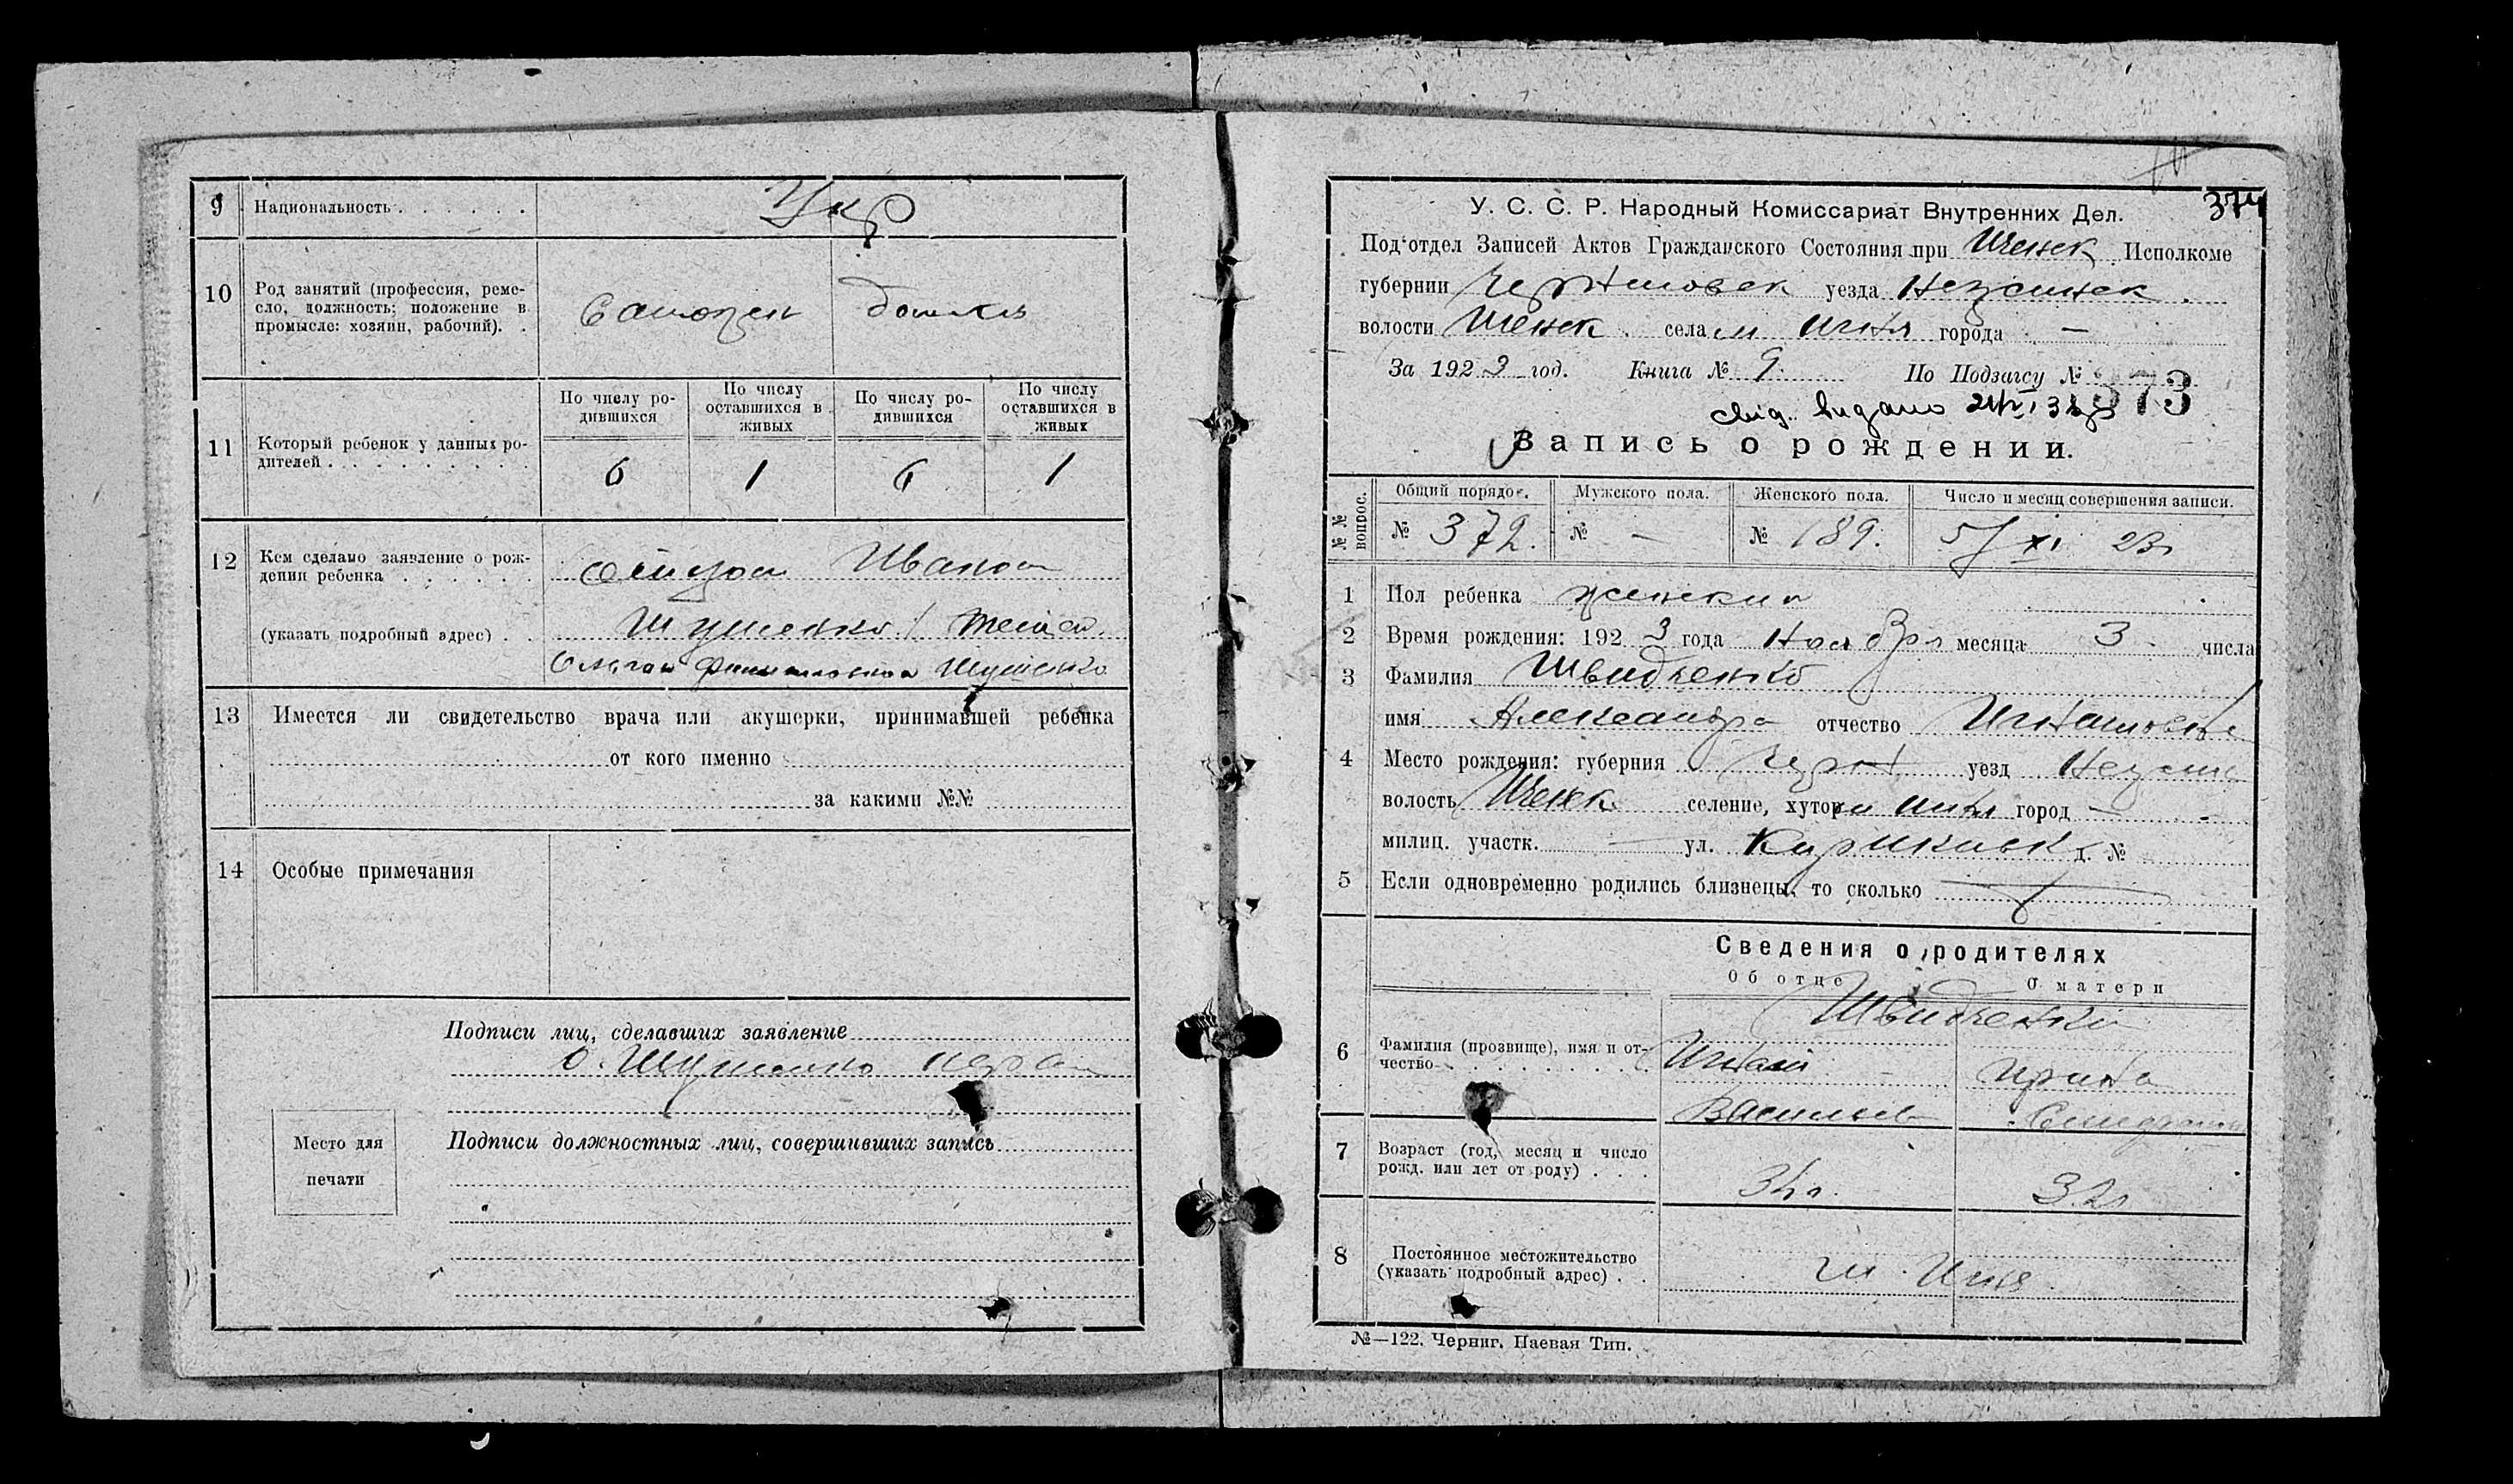 9 Национальность Укр
10 Род занятий (профессия, реме-
сло, должность; положение в
промысле: хозяин, рабочий).
11 Который ребенок у данных ро-
дителей
По числу ро-
дившихся
По числу
оставшихся в
живых
По числу ро-
дившихся
По числу
оставшихся в
живых
6 1 6 1
12 Кем сделано заявление о рож-
дении ребенка
(указать подробный адрес)
13 Имеется ли свидетельство врача или акушерки, принимавшей ребенка
от кого именно
за какими №№
14 Особые примечания
Подписи лиц, сделавших заявление
Место для
печати
Подписи должностных лиц, совершивших запись
374
У. С. С. Р. Народный Комиссариат Внутренних Дел.
Под‘отдел Записей Актов Гражданского Состояния при Ичнск Исполкоме
губернии Черниговск уезда Нежинск
волости Ичнск села м Ичня города —
За 1923 год. Книга № 9 По Подзагсу № 373
Запись о рождении.
№№ вопрос. Общий порядок. Мужского пола. Женского пола. Число и месяц совершения записи.
№ 372. № — № 189. 5/XI 23
1 Пол ребенка женский
2 Время рождения: 1923 года Ноября месяца 3 числа
3 Фамилия Швидченко
имя Александра отчество Игнатовна
4 Место рождения: губерния Черн уезд Нежин
волость Ичнск селение, хутор м Ичня город —
милиц. участк. — ул. д. №
5 Если одновременно родились близнецы, то сколько
Сведения о родителях
Об отце О матери
Швидченко
6 Фамилия (прозвище), имя и от-
чество
Игнат Ирина
Васильев
7 Возраст (год, месяц и число
рожд. или лет от роду)
34 л. 32 л
8 Постоянное местожительство
(указать подробный адрес)
м. Ичня
№—122. Черниг. Паевая Тип.